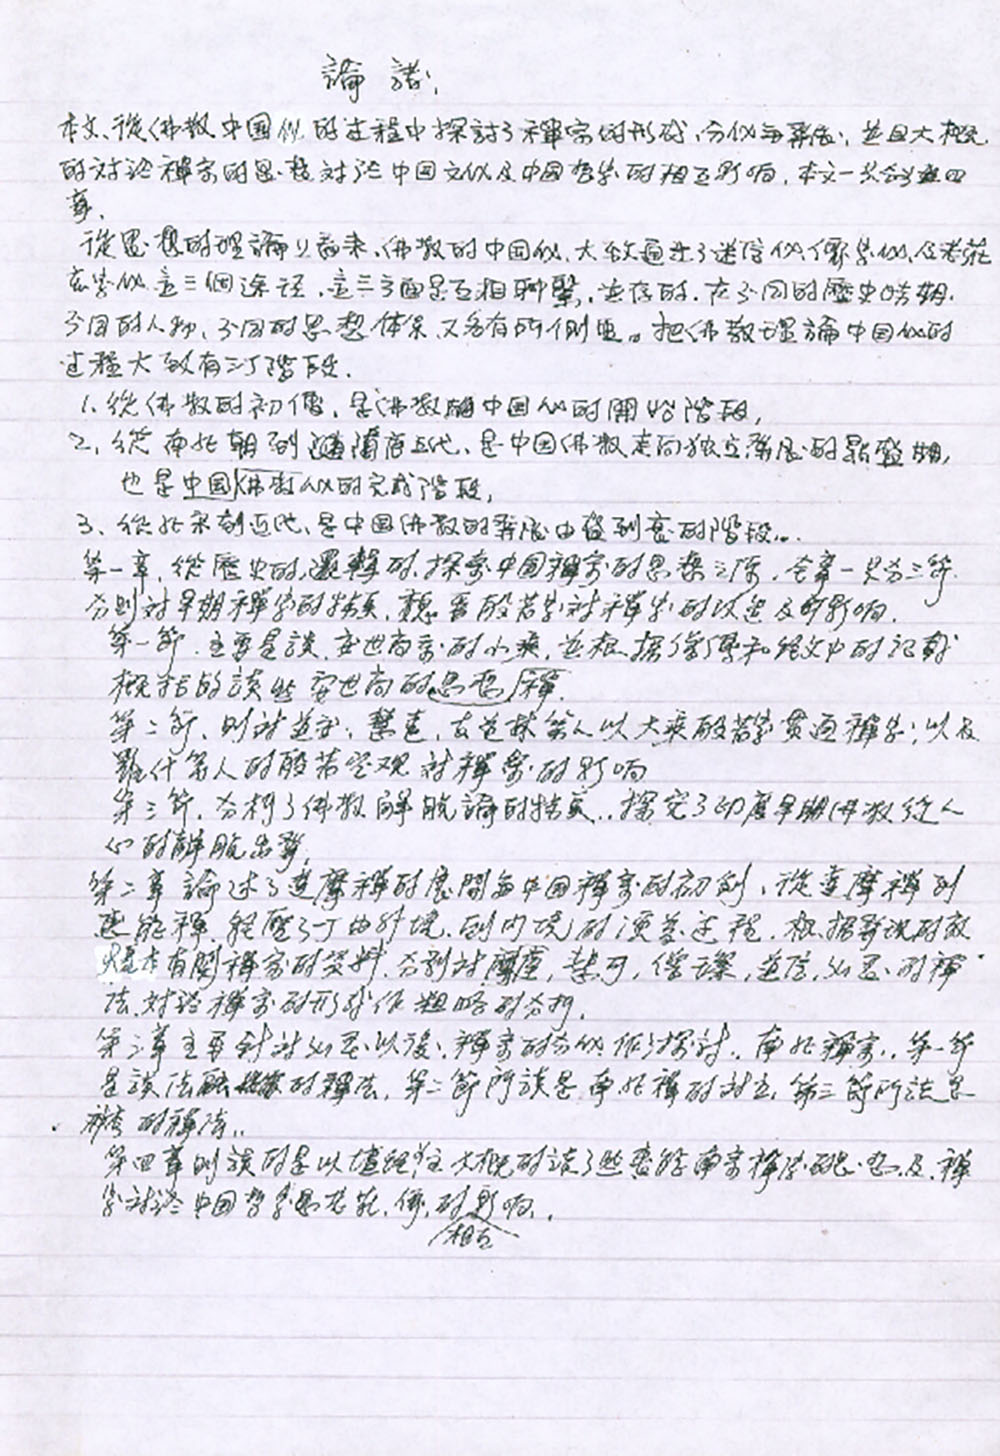 論議
本文、從佛教中国化的过程中探討了禪宗的形成、分化与發展,並且大概
的討论禪宗的思想对於中国文化及中国哲学的相互影响,本文一共分四
章.
從思想的理論上看来,佛教的中国化、大致通过了迷信化、儒学化、及老莊
玄学化這三個途径,這三方面是互相聯繫,並存的,在不同的歷史時期.
不同的人物、不同的思想体系又各有所側重。把佛教理論中国化的
过程大致有三个階段.
1. 從佛教的初傳,是佛教的中国化的開始階段,
2. 從南北朝到隋唐五代、是中国佛教走向独立發展的鼎盛期,
也是中国佛教化的完成階段,
3. 從北宋到近代,是中国佛教的發展由盛到衰的階段..
第一章,從歷史的,邏輯的,探索中国禪宗的思想之源,全章一共分三節.
分别对早期禪学的特质,般若学对禪学的改造及影响.
第一節.主要是談.安世高的小乘,並根据僧傳和经文中的記載
概括的談些安世高的思想禪.
第二節,则对道安,慧遠,支道林等人以大乘般若学贯通禪学;以及
羅什等人的般若空观对禪宗的影响
第三節.分析了佛教解脫論的特质..探究了印度早期佛教從人
心的解脫出發,
第二章論述了達摩禪的展開与中国禪宗的初創、從達摩禪到
惠能禪,經歷了一个由外境,到内境的演变过程.根据發现的敦
煌本有関禪宗的資料.分别对達摩,慧可,僧璨,道信,弘忍的禪
法.对於禪宗的形成作粗略的分析.
第三章主要針对弘忍以後,禪宗的分化作了探討..南北禪宗..第一節
是談法融的禪法,第二節所談是南北禪的对立,第三節所談是
的禪法..
第四章则談的是以壇經為主大概的談了些惠能南宗禪学的思想及禪
学对於中国哲学思想老莊.儒.的影响..
相互